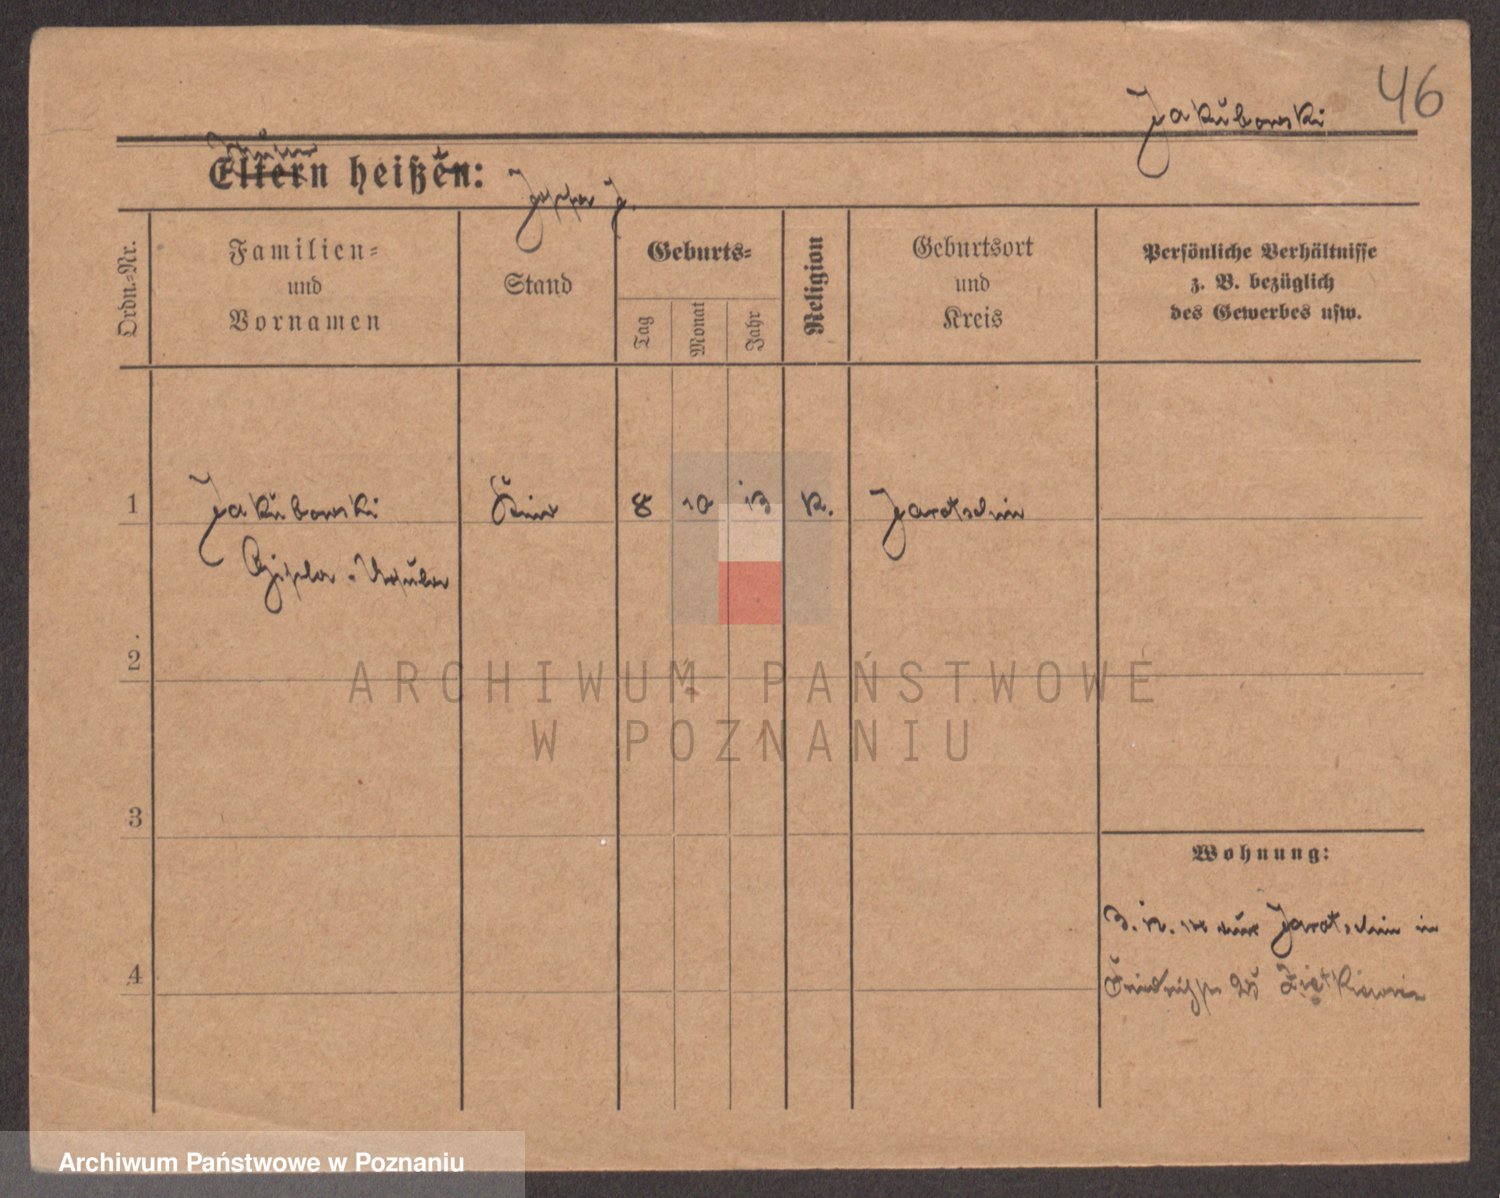 46
Jakubowski
Eltern heißen:
Ordn.=Nr.
Familien=
und
Vornamen
Stand
Geburts=
Tag
Monat
Jahr
Religion
Geburtsort
und
Kreis
Persönliche Verhältnisse
z. B. bezüglich
des Gewerbes usw.
1
Jakubowski
8
10
13
K.
Jarotschin
Gisela - Ursula
2
3
4
Wohnung:
Jarotschin in
ARCHIWUM PAŃSTWOWE
W POZNANIU
Archiwum Państwowe w Poznaniu